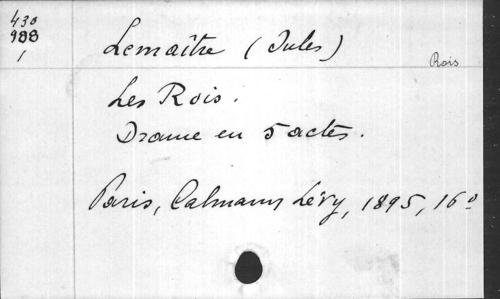 430
988
1
Lemaître (Jules)
Rois
Les Rois.
Drame en 5 actes.
Paris, Calmann Lévy, 1895, 16º